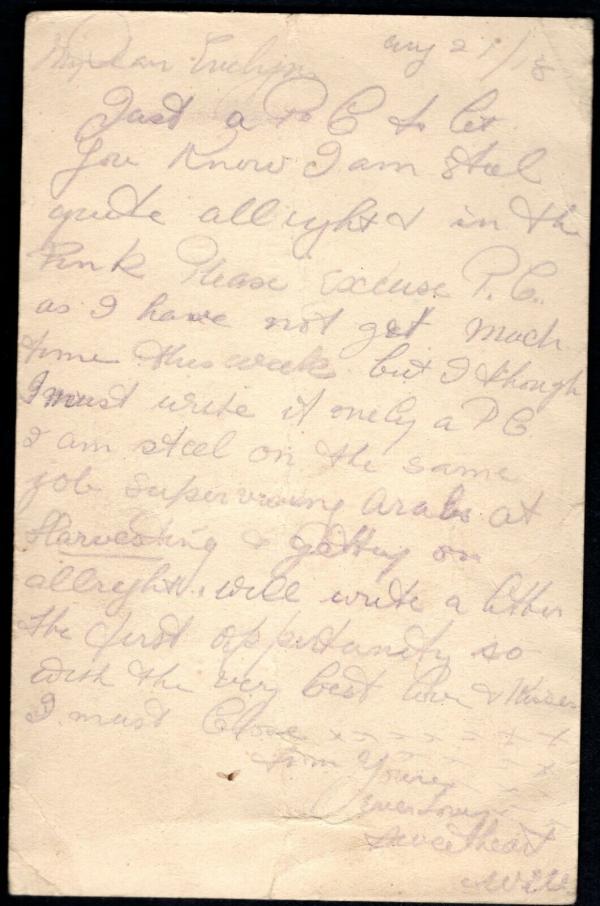 My Dear Evelyn Aug 21/18
Just a P C to let
you know I am steel
quite allright & in the
Pink Please Excuse P.C.
as I have not get much
time this week but I though
I must write it onely a P C
I am steel on the same
job superviseing Arabs at
Harvesting & getting on
allright. will write a letter
the first oppertunity so
with the very best love & Kisses
I must Close x x x x x x x
from Yours x x x
Ever Loving
Sweetheart
Will